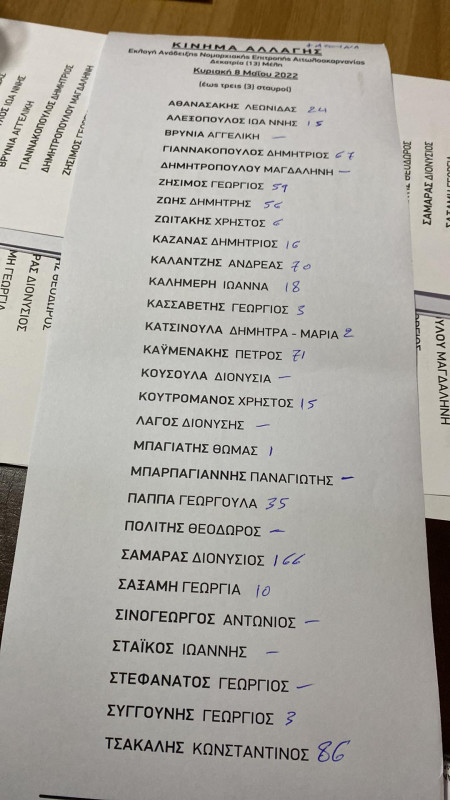 ΚΙΝΗΜΑ ΑΛΛΑΓΗΣ
Εκλογή Ανάδειξης Νομαρχιακής Επιτροπής Αιτωλοακαρνανίας
Δεκατρία (13) Μέλη
Κυριακή 8 Μαΐου 2022
(έως τρεις (3) σταυροί)
ΑΘΑΝΑΣΑΚΗΣ ΛΕΩΝΙΔΑΣ 24
ΑΛΕΞΟΠΟΥΛΟΣ ΙΩΑ ΝΝΗΣ 15
ΒΡΥΝΙΑ ΑΓΓΕΛΙΚΗ —
ΓΙΑΝΝΑΚΟΠΟΥΛΟΣ ΔΗΜΗΤΡΙΟΣ 67
ΔΗΜΗΤΡΟΠΟΥΛΟΥ ΜΑΓΔΑΛΗΝΗ —
ΖΗΣΙΜΟΣ ΓΕΩΡΓΙΟΣ 59
ΖΩΗΣ ΔΗΜΗΤΡΗΣ 56
ΖΩΙΤΑΚΗΣ ΧΡΗΣΤΟΣ 6
ΚΑΖΑΝΑΣ ΔΗΜΗΤΡΙΟΣ 16
ΚΑΛΑΝΤΖΗΣ ΑΝΔΡΕΑΣ 70
ΚΑΛΗΜΕΡΗ ΙΩΑΝΝΑ 18
ΚΑΣΣΑΒΕΤΗΣ ΓΕΩΡΓΙΟΣ 3
ΚΑΤΣΙΝΟΥΛΑ ΔΗΜΗΤΡΑ - ΜΑΡΙΑ 2
ΚΑΫΜΕΝΑΚΗΣ ΠΕΤΡΟΣ 71
ΚΟΥΣΟΥΛΑ ΔΙΟΝΥΣΙΑ —
ΚΟΥΤΡΟΜΑΝΟΣ ΧΡΗΣΤΟΣ 15
ΛΑΓΟΣ ΔΙΟΝΥΣΗΣ —
ΜΠΑΓΙΑΤΗΣ ΘΩΜΑΣ 1
ΜΠΑΡΠΑΓΙΑΝΝΗΣ ΠΑΝΑΓΙΩΤΗΣ —
ΠΑΠΠΑ ΓΕΩΡΓΟΥΛΑ 35
ΠΟΛΙΤΗΣ ΘΕΟΔΩΡΟΣ —
ΣΑΜΑΡΑΣ ΔΙΟΝΥΣΙΟΣ 166
ΣΑΞΑΜΗ ΓΕΩΡΓΙΑ 10
ΣΙΝΟΓΕΩΡΓΟΣ ΑΝΤΩΝΙΟΣ —
ΣΤΑΪΚΟΣ ΙΩΑΝΝΗΣ —
ΣΤΕΦΑΝΑΤΟΣ ΓΕΩΡΓΙΟΣ —
ΣΥΓΓΟΥΝΗΣ ΓΕΩΡΓΙΟΣ 3
ΤΣΑΚΑΛΗΣ ΚΩΝΣΤΑΝΤΙΝΟΣ 86
ΒΡΥΝΙΑ ΑΓΓΕΛΙΚΗ
ΓΙΑΝΝΑΚΟΠΟΥΛΟΣ ΔΗΜΗΤΡΙΟΣ
ΔΗΜΗΤΡΟΠΟΥΛΟΥ ΜΑΓΔΑΛΗΝΗ
ΣΑΜΑΡΑΣ ΔΙΟΝΥΣΙΟΣ